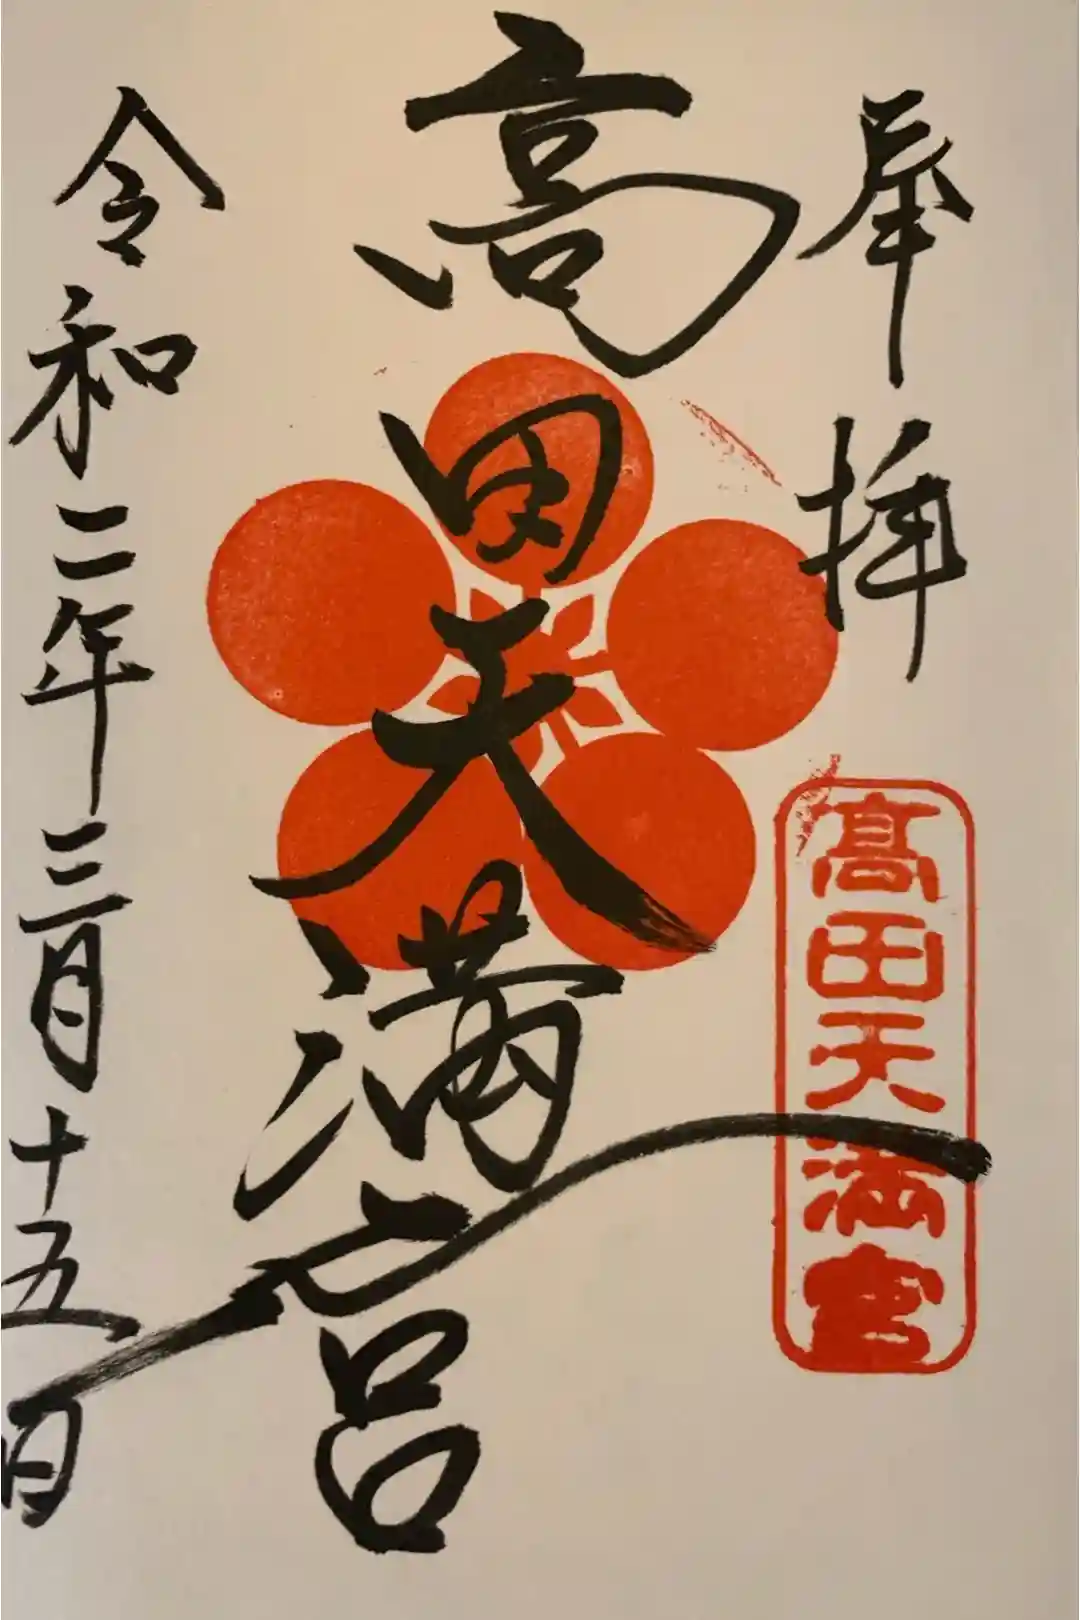 奉拝
高田天満宮
高田天満宮
令和二年三月十五日